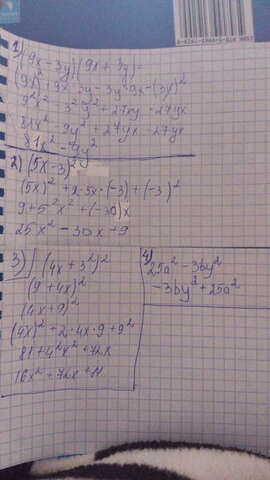 1) (9x - 3y)(9x + 3y) =
(9x)² + 9x · 3y - 3y · 9x - (3y)²
9²x² - 3²y² + 27xy - 27yx
81x² - 9y² + 27yx - 27yx
81x² - 9y²
2) (5x - 3)²
(5x)² + 2 · 5x · (-3) + (-3)²
9 + 5²x² + (-30)x
25x² - 30x + 9
3) (4x + 3²)²
(9 + 4x)²
(4x + 9)²
(4x)² + 2 · 4x · 9 + 9²
81 + 4²x² + 72x
16x² + 72x + 81
4)
25a² - 36y²
-36y² + 25a²